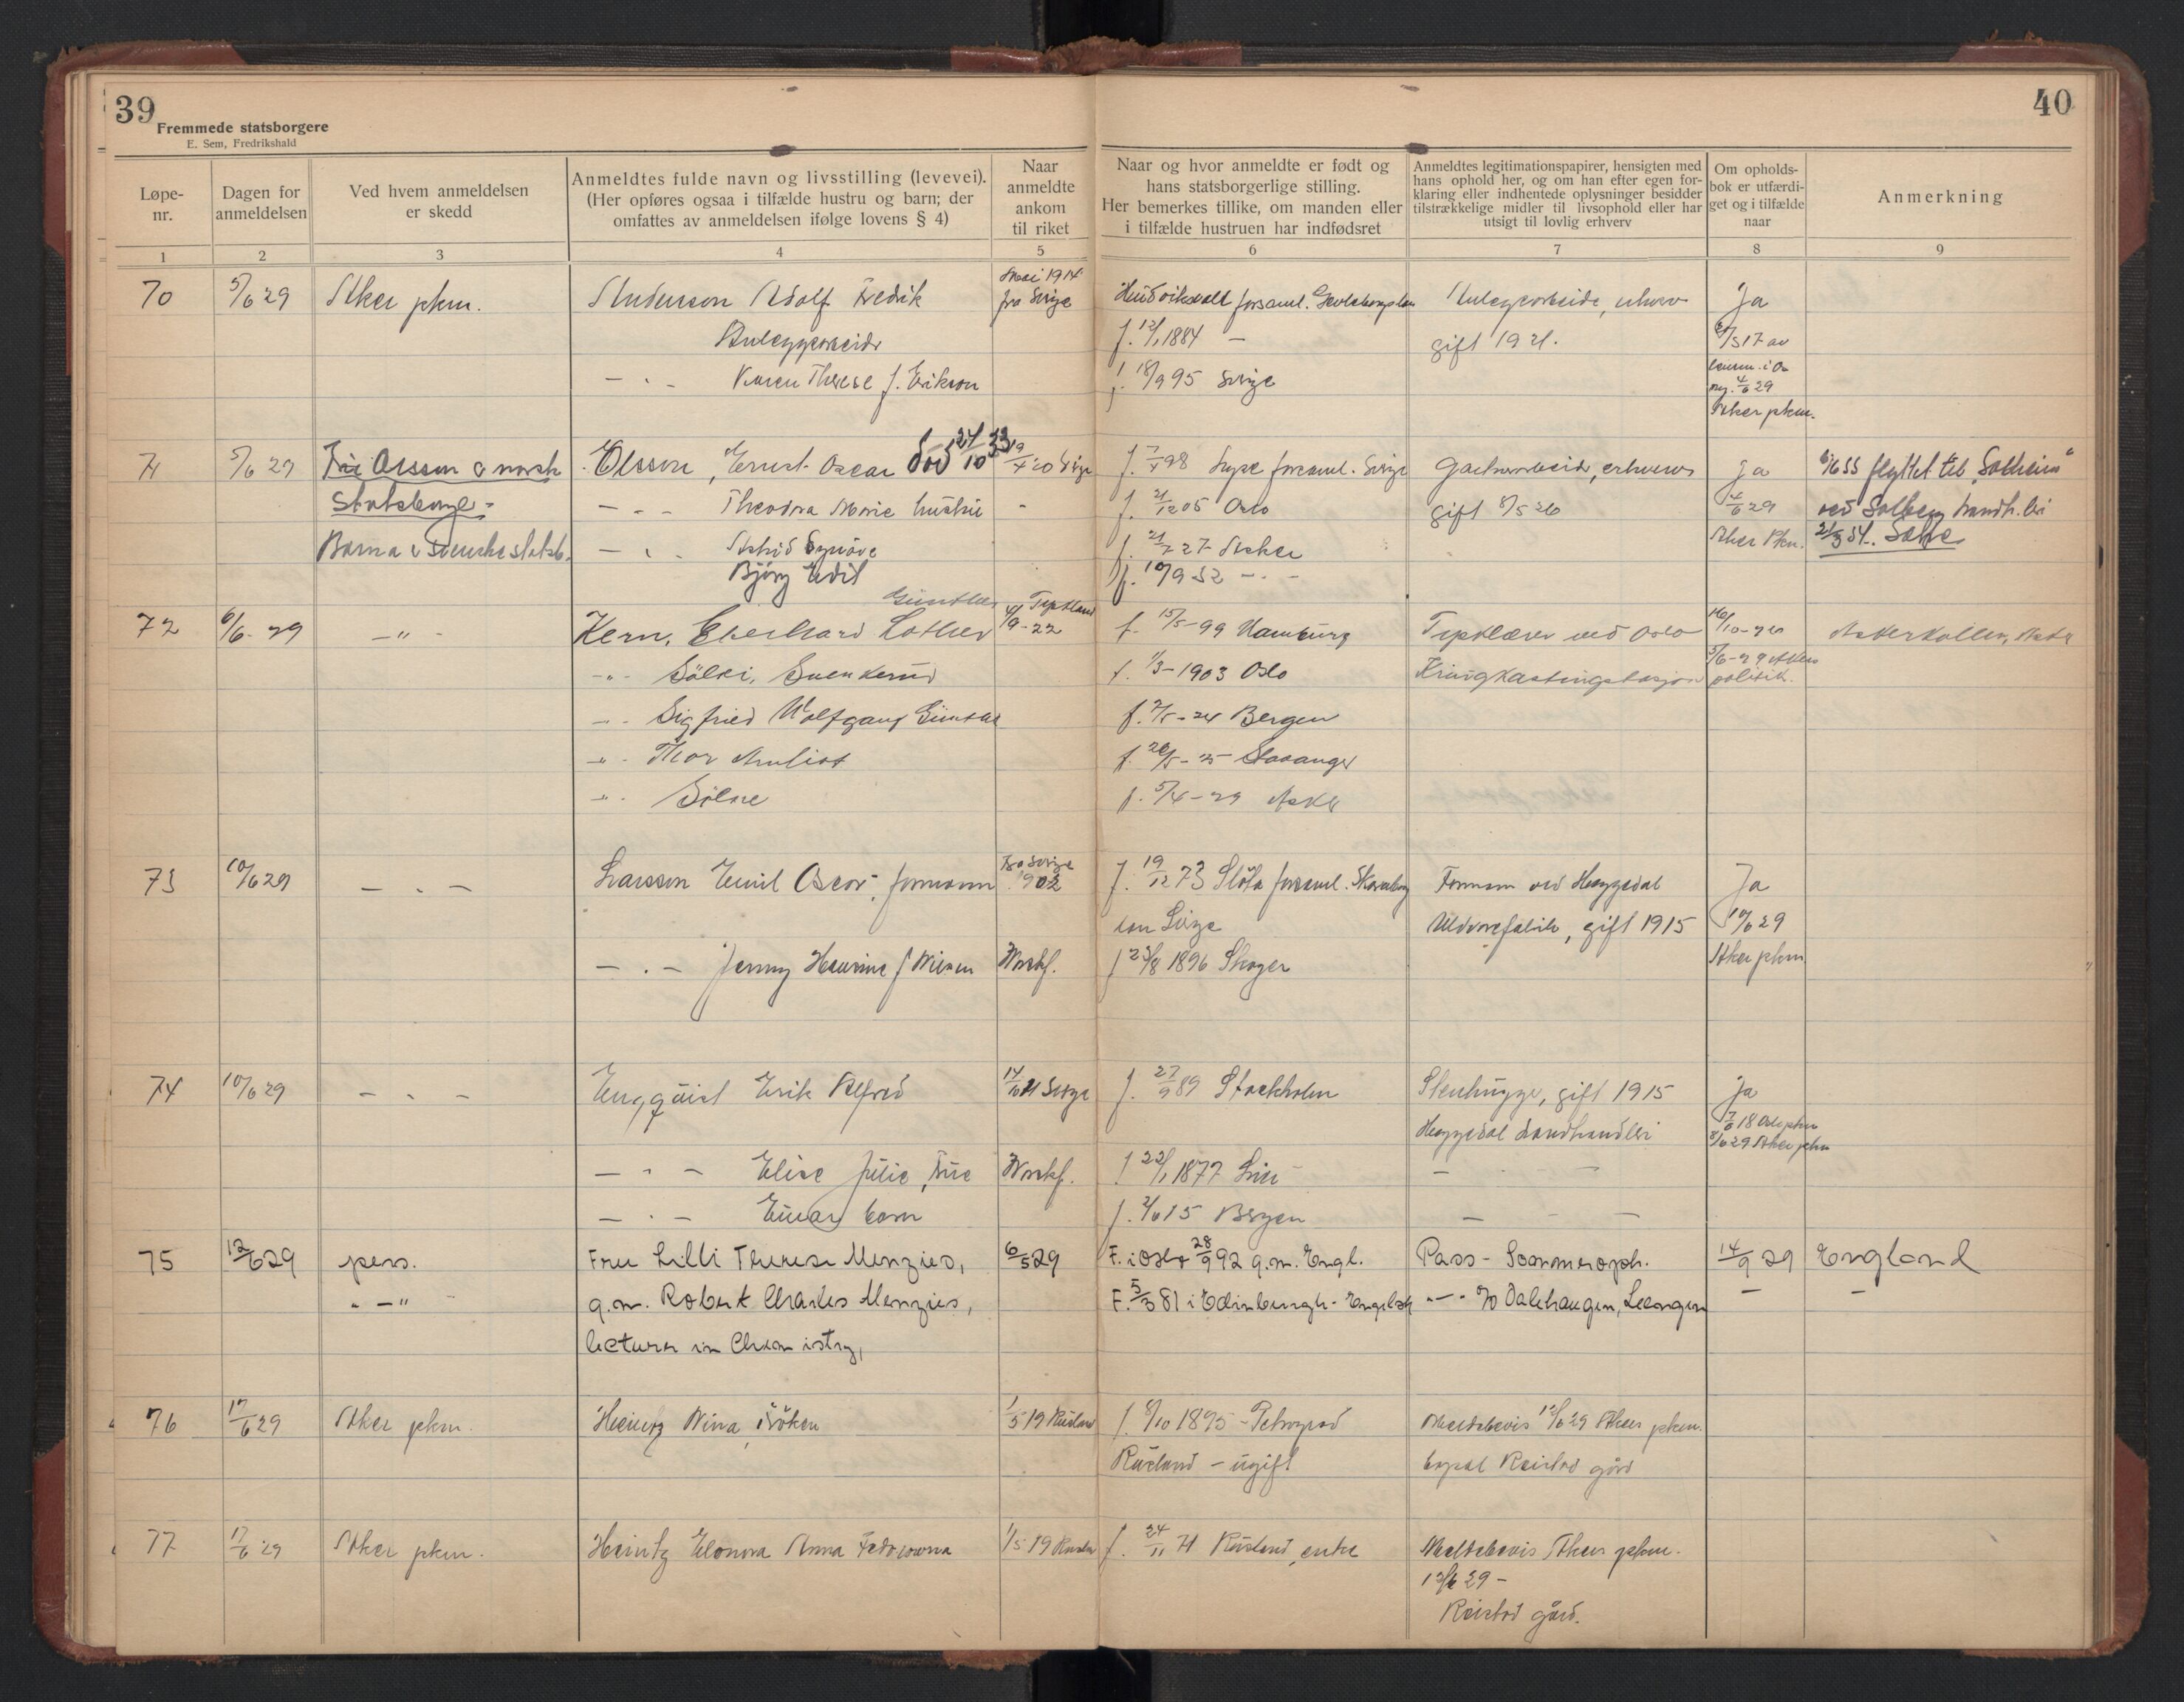 39
Fremmede statsborgere
E. Sem, Fredrikshald
40
Løpe-
nr.
Dagen for
anmeldelsen
Ved hvem anmeldelsen
er skedd
Anmeldtes fulde navn og livsstilling (levevei).
(Her opføres ogsaa i tilfælde hustru og barn; der
omfattes av anmeldelsen ifølge lovens § 4)
Naar
anmeldte
ankom
til riket
Naar og hvor anmeldte er født og
hans statsborgerlige stilling.
Her bemerkes tillike, om manden eller
i tilfælde hustruen har indfødsret
Anmeldtes legitimationspapirer, hensigten med
hans ophold her, og om han efter egen for-
klaring eller indhentede oplysninger besidder
tilstrækkelige midler til livsophold eller har
utsigt til lovlig erhverv
Om opholds-
bok er utfærdi-
get og i tilfælde
naar
Anmerkning
1 2 3 4 5 6 7 8 9
70 5/6 29 Asker pkm. Anderson Adolf Fredrik Mai 1914 fra Sverige Hudviksvall forsaml. Anleggarbeide, erhverv Ja
Anleggsarbeider f. 12/1 1884 — gift 1921. /3 17 av
— " — Karen Therese f. Erikson f. 18/9 95 Sverige 4/6 29
Asker pkm.
71 5/6 29 Fru Olsson er norsk Olsson, Ernst Oscar død 24/10 33 Sverige f. 7/4 98 forsaml. Sverige Gartnerarbeid, erhverv ja flyttet til "Solheim"
Statsborger - — " — Theodora Marie hustru - f. 21/12 05 Oslo gift 8/5 26 4/6 29 ved Solberg Landh.eri
Barna er svenske statsb. — " — Astrid Synøve f. 21/7 27 Asker Asker Pkm. 21/3 54. Sake
Bjørg Edit f. 10/9 32 — " —
72 6/6-29 — " — Kern, Eberhard Lothar Günther Tyskland 4/9-22 f. 15/5-99 Hamburg Tysklærer ved Oslo 16/10-28 Askerkollen, Asker
— " — Sölvi, Svenkerud f. 1/3-1903 Oslo Kringkastingstasjon 5/6-29 Askers politik.
— " — Sigfried Wolfgang Günther f. 2/5-24 Bergen
— " — Thor f. 26/5-25 Stavanger
— " — Sölve f. 5/4-29 Asker
73 10/6 29 — " — Larsson Emil Oscar, formann Fra Sverige 1902 f. 19/12 73 Slöta forsaml. Skaraborg Formann ved Heggedal Ja
len Sverige Uldvarefabrik, gift 1915 10/6 29
— " — Jenny Henrine f Nilsen Norskf. f 23/8 1896 Skoger Asker pkm
74 10/6 29 — " — Engquist Erik Alfred 14/6 21 Sverige f. 27/9 89 Stockholm Stenhugger, gift 1915 ja
Heggedal Landhandleri 7/6 18 Oslo pkm
8/6 29 Asker pkm
— " — Elise Julie, Frue Norskf. f 22/1 1877 Lier — " —
— " — Einar barn f. 2/6 15 Bergen — " —
75 12/6 29 pers. Fru Lilli Therese Menzies, 6/5 29 F. i Oslo 28/9 92 g.m. Engl. Pass - Sommeroph. 14/9 29 England
" — " g.m. Robert Charles Menzies, F. 5/3 81 i Edinburgh - Engelsk — " — c/o Dalehaugen, Leangen — —
lecturer in Chemistry,
76 17/6 29 Asker pkm. Heintz Nina, frøken 1/5 19 Rusland f. 8/10 1895 - Petrograd Meldebevis 12/6 29 Asker pkm.
Rusland - ugift bopæl Reistad gård
77 17/6 29 Asker pkm. Heintz Elonora Anna Fedorowna 1/5 19 Rusland f. 24/11 71 Rusland, enke Meldebevis Asker pkm.
12/6 29 -
Reistad gård.